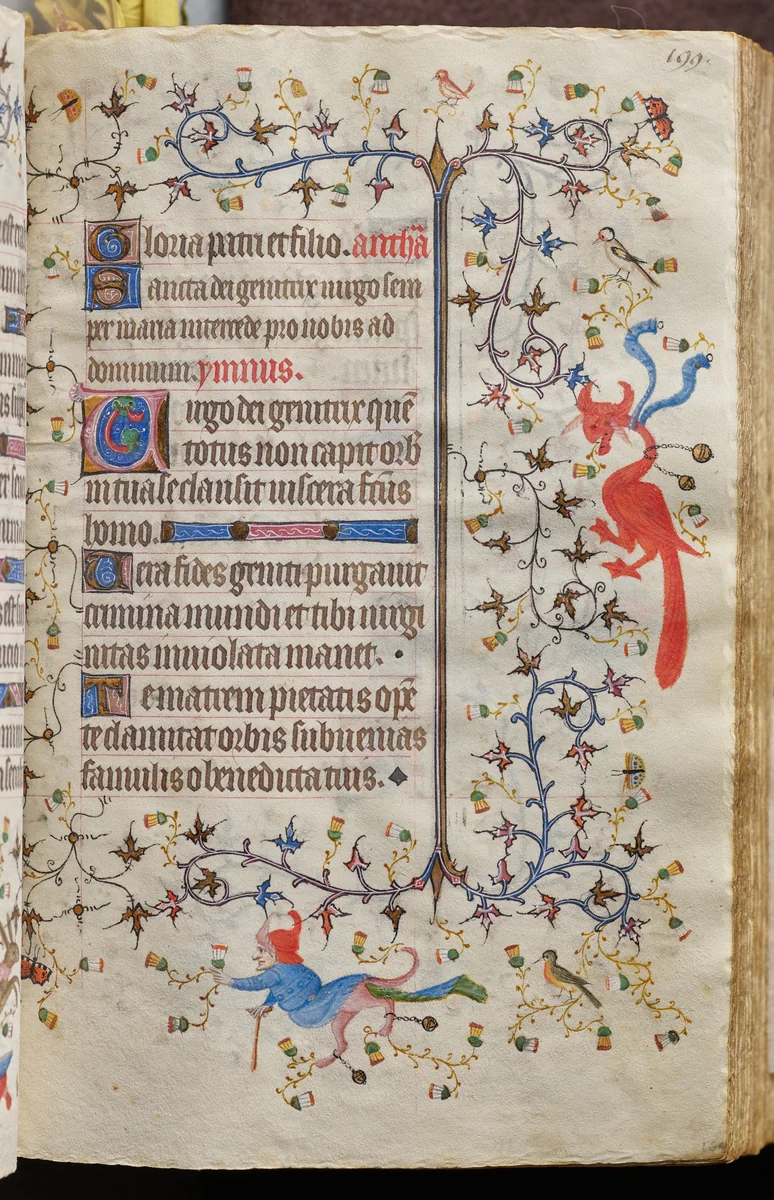 199.
Gloria patri et filio. anthã
Sancta dei genitrix uirgo sem
per maria intercede pro nobis ad
dominum. ymnus.
Uirgo dei genitrix quē
totus non capit orb̄
in tua se clausit uiscera fc̄us
homo.
Uera fides geniti purgauit
crimina mundi et tibi uirgi
nitas inuiolata manet.
Te matrem pietatis opē
te clamitat orbis subuenias
famulis o benedicta tuis.